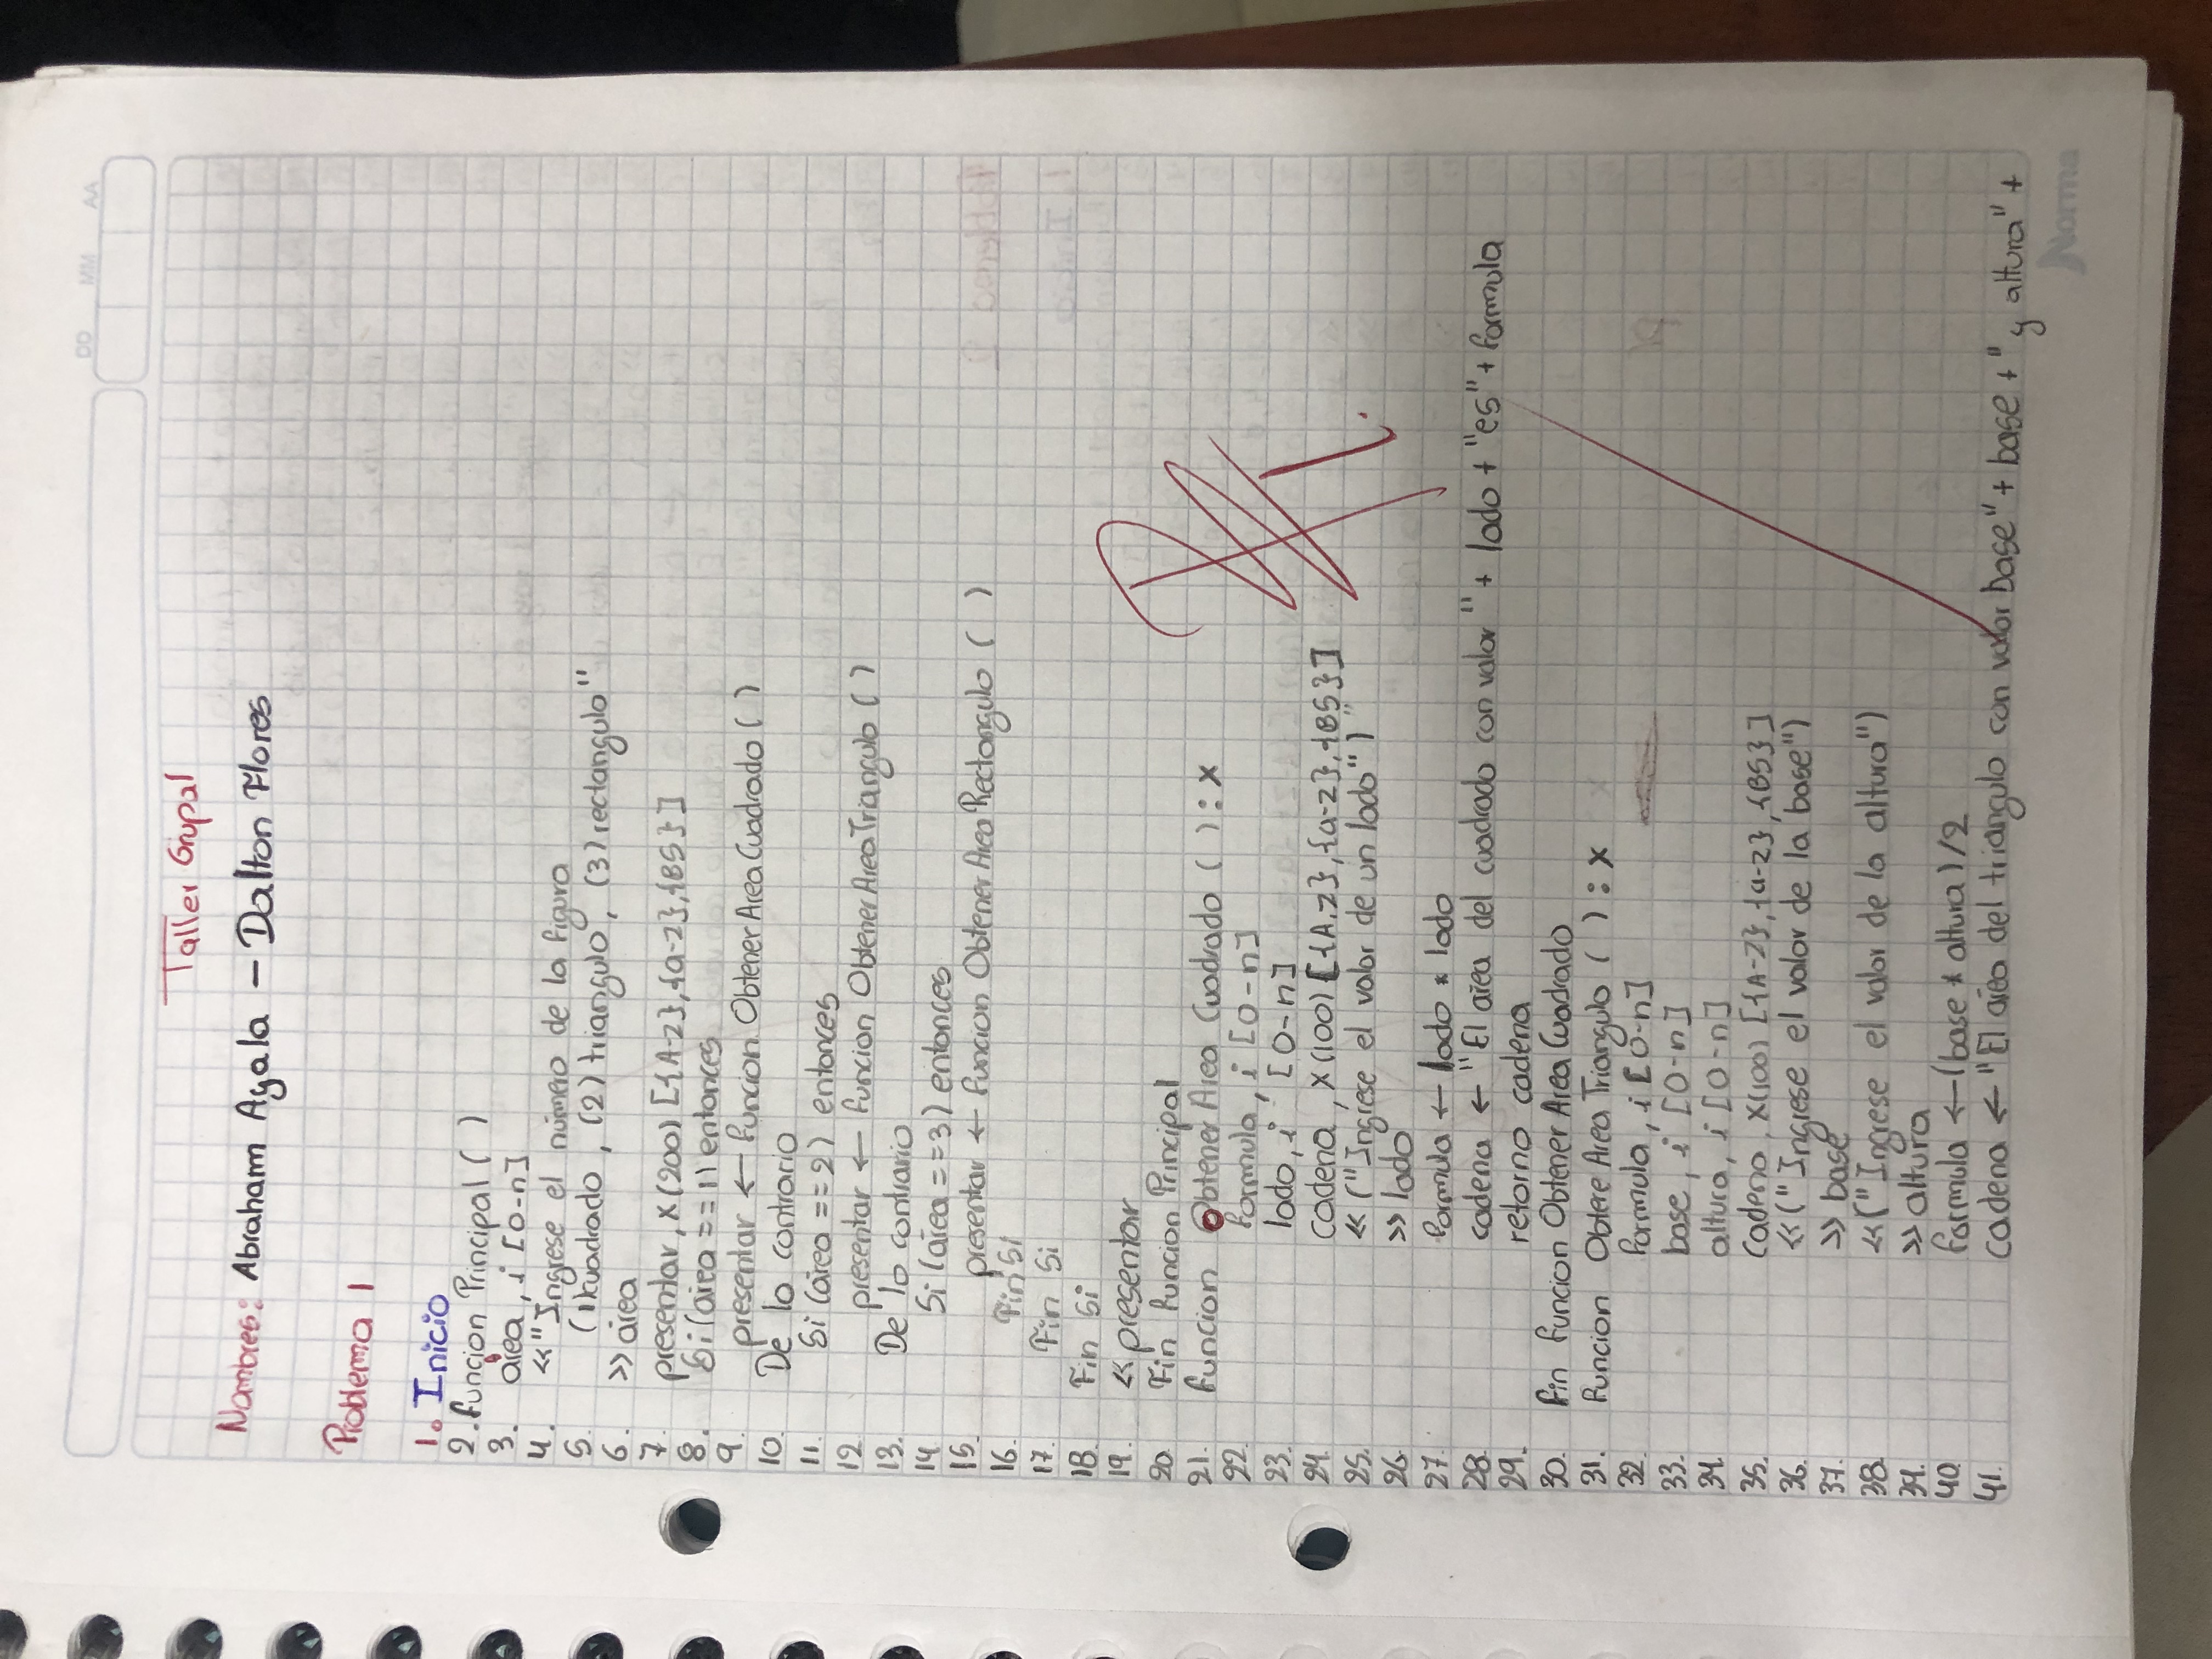 DD MM AA
Taller Grupal
Nombres: Abraham Ayala – Dalton Flores
Problema 1
1. Inicio
2. funcion Principal ( )
3. area, i [0-n]
4. << "Ingrese el número de la figura
5. (1)cuadrado, (2) triangulo, (3) rectangulo"
6. >> area
7. presentar, X(200) [{A-Z},{a-z},{BS}]
8. Si (area == 1) entonces
9. presentar ← funcion ObtenerAreaCuadrado ( )
10. De lo contrario
11. Si (area == 2) entonces
12 presentar ← funcion ObtenerAreaTriangulo ( )
13. De lo contrario
14 Si (area == 3) entonces
15. presentar ← funcion ObtenerAreaRectangulo ( )
16. Fin Si
17. Fin Si
18. Fin Si
19. << presentar
20. Fin funcion Principal
21. funcion Obtener Area Cuadrado ( ) : X
22. formula, i [0-n]
23. lado, i [0-n]
24. cadena, X(100) [{A.Z},{a-z},{BS}]
25. << ("Ingrese el valor de un lado") "
26. >> lado
27. formula ← lado * lado
28. cadena ← "El area del cuadrado con valor " + lado + "es" + formula
29. retorno cadena
30. fin funcion Obtener Area Cuadrado
31. funcion Obtere Area Triangulo ( ) : X
32. formula, i [0-n]
33. base, i [0-n]
34. altura, i [0-n]
35. cadena, X(100) [{A-Z},{a-z},{BS}]
36. << ("Ingrese el valor de la base")
37. >> base
38. << ("Ingrese el valor de la altura")
39. >> altura
40 formula ← (base * altura) /2
41. cadena ← "El area del triangulo con valor base" + base + "y altura" +
Norma